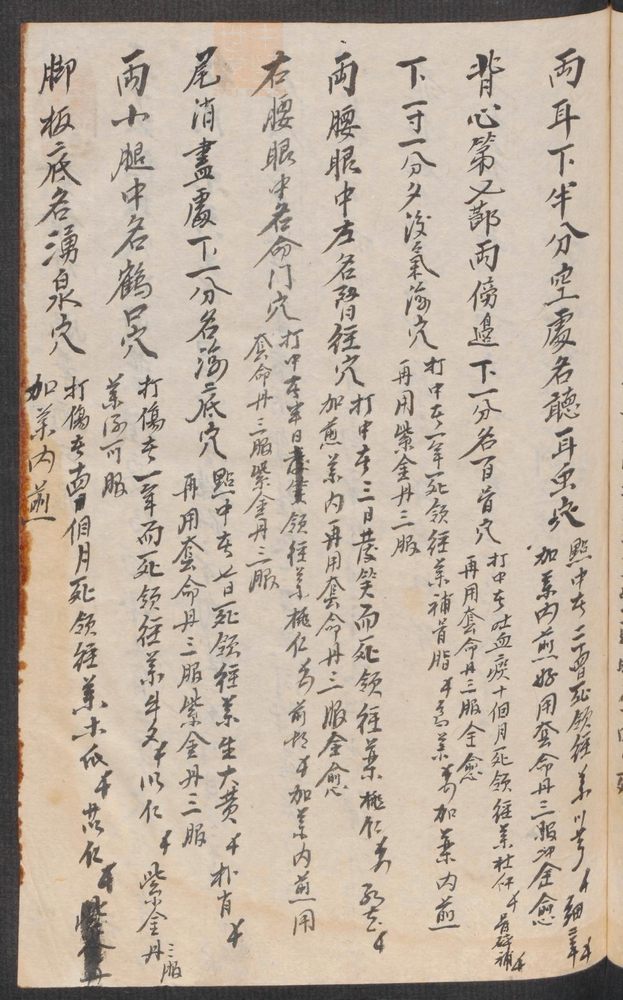 兩耳下半分空處名聽耳虫穴
點中在二十四日死領經藥川芎
加藥內煎好用套命丹三服即全愈
背心第又節兩傍邊下一分名百旨穴
打中在吐血痰十個月死領經藥杜仲 骨碎補
再用套命丹三服全愈
下一寸一分名後氣海穴
打中在一年死領經藥補骨脂 加藥內煎
再用紫金丹三服
兩腰眼中左名腎經穴
打中在三日發笑而死領經藥桃仁 紅花
加煎藥內再用套命丹三服全愈
右腰眼中名命门穴
打中在半日 領經藥桃仁 前胡 加藥內煎用
套命丹三服紫金丹三服
尾消盡處下一分名海底穴
點中在七日死領經藥生大黃 朴肖
再用套命丹三服紫金丹三服
兩小腿中名鶴口穴
打傷在一年而死領經藥牛夕 以仁 紫金丹三服
藥湯可服
脚板底名湧泉穴
打傷在 個月死領經藥木瓜 苡仁
加藥內煎